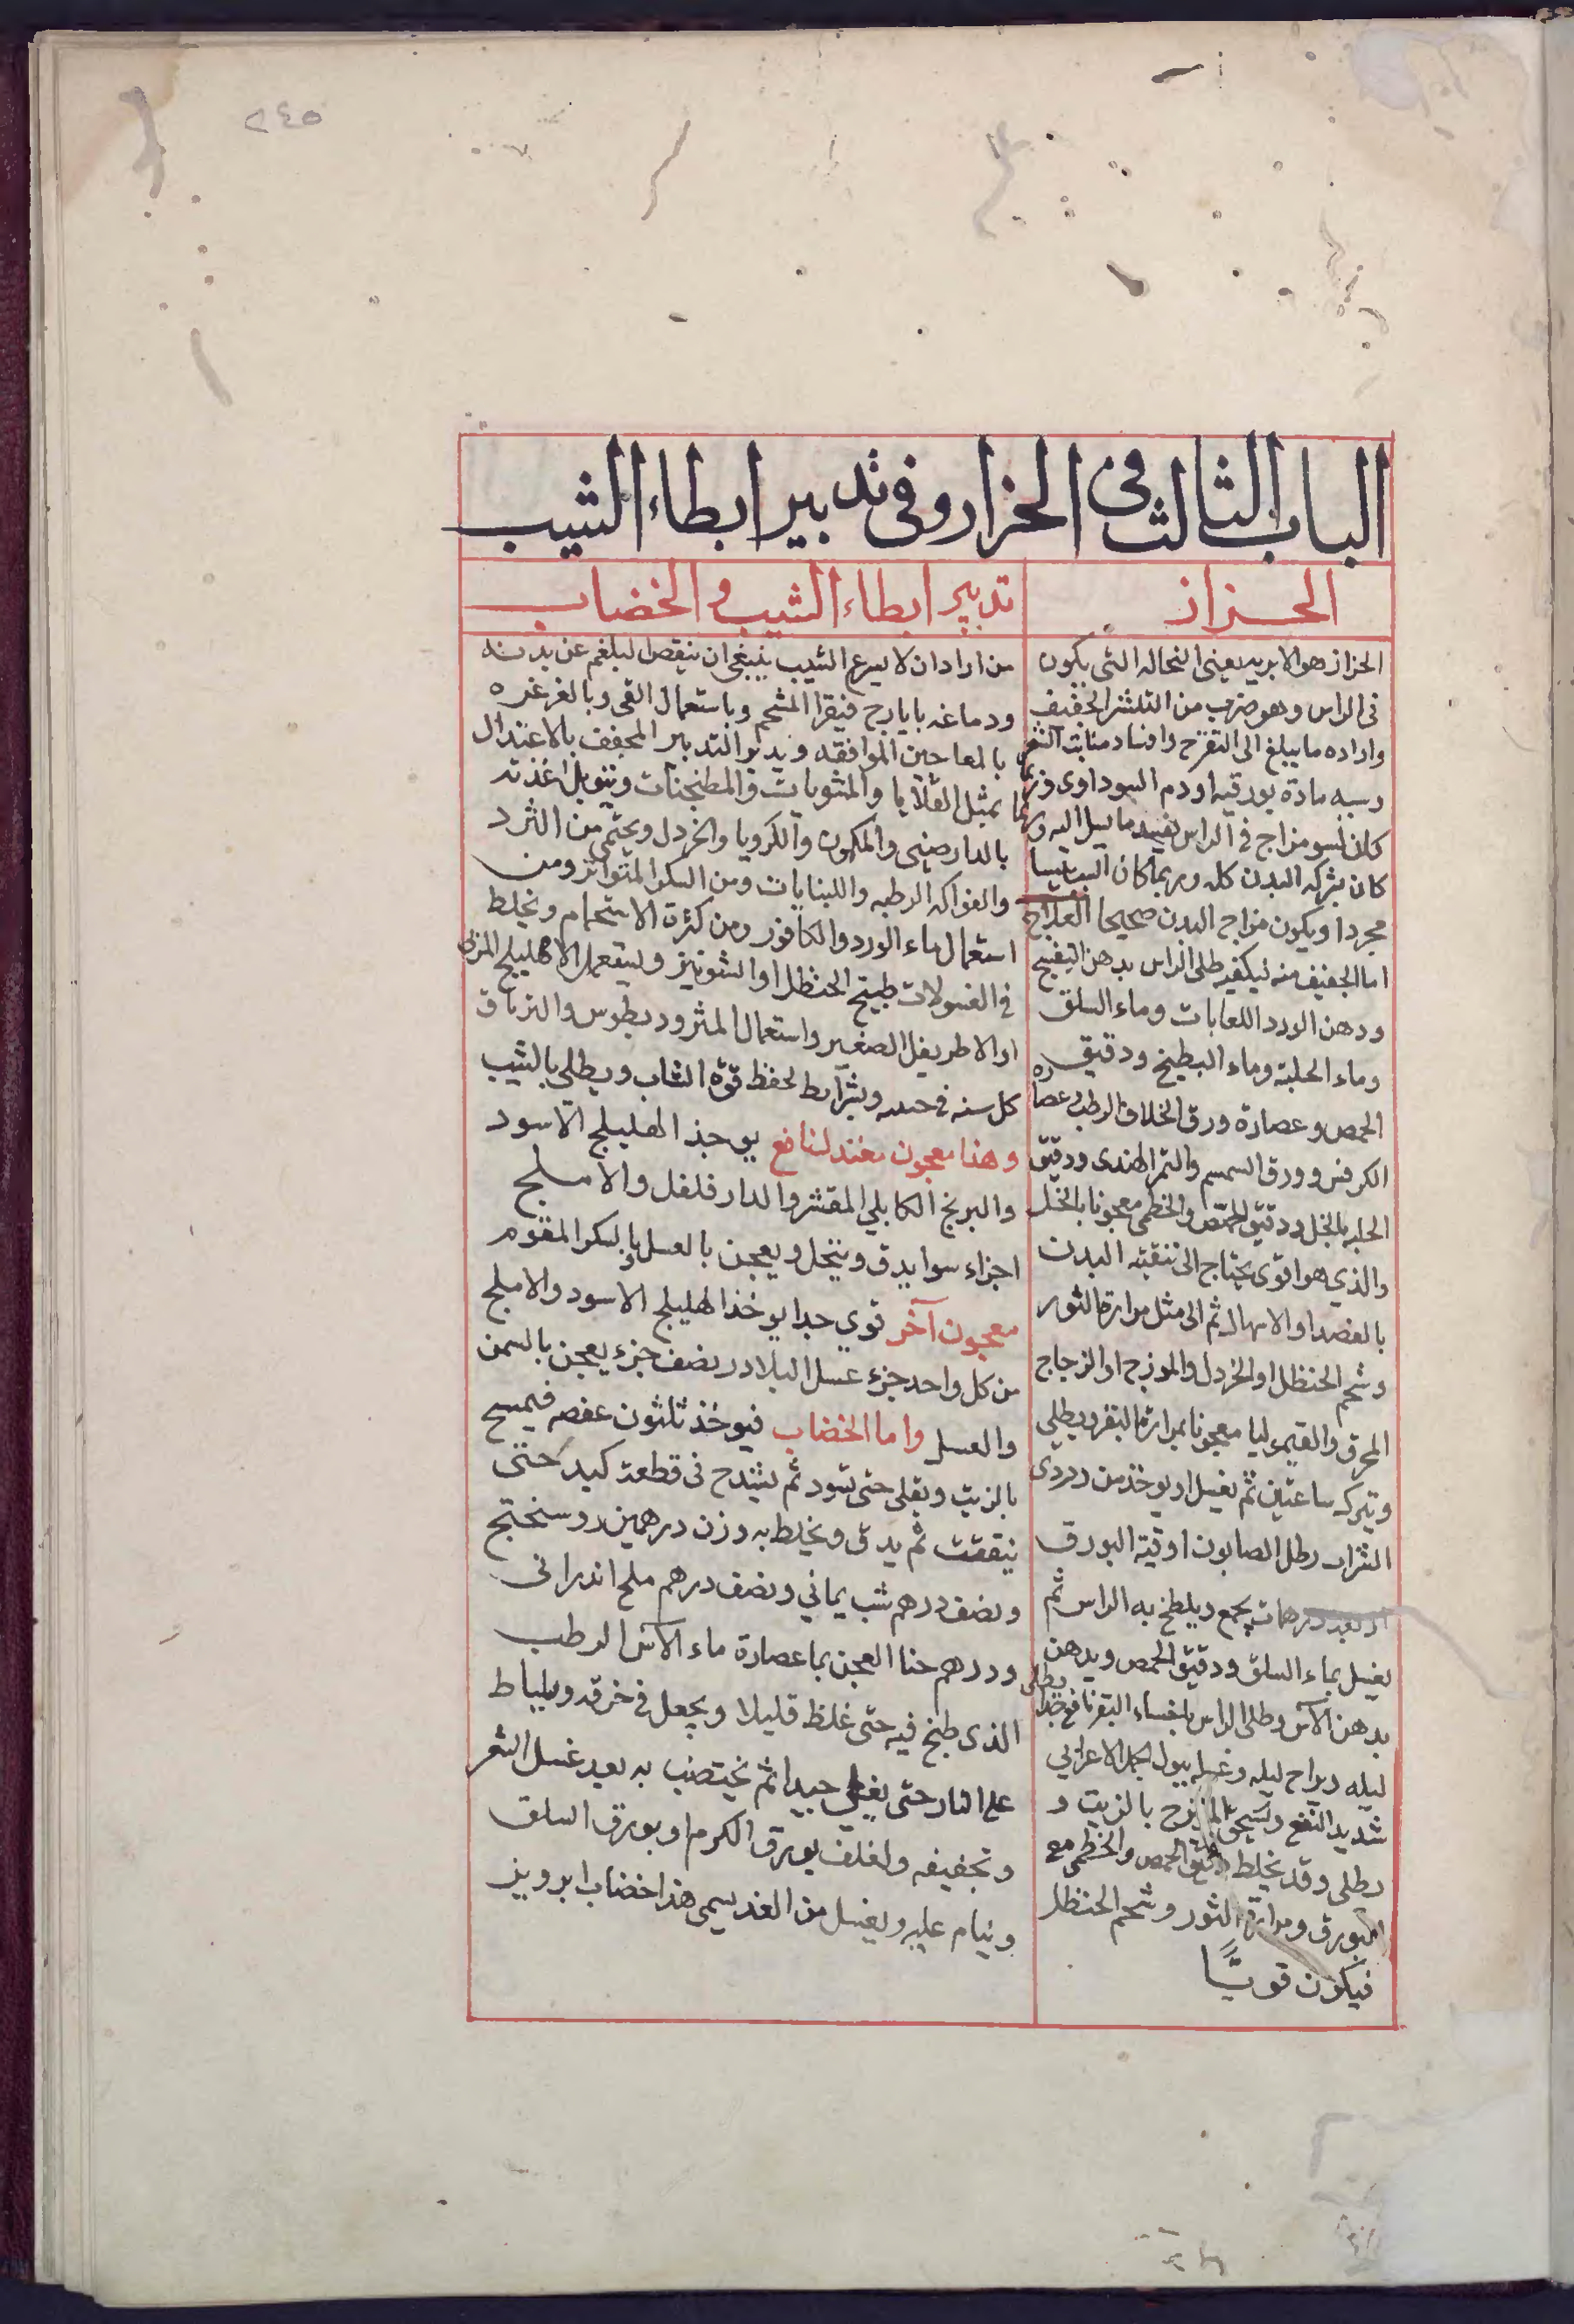 ٢٤٥
الباب الثالث فى الحزاز وفى تدبير ابطاء الشيب
الحزاز
الحزاز هو الابريه يعنى النخاله التى يكون
فى الراس وهو ضرب من التقشر الخفيف
واراده ما يبلغ الى التقرح وافساد منابت الشعر
وسببه مادة بورقيه اودم السوداوى وربما
كان لسو مزاج فى الراس يفسد ما يصل اليه وربما
كان بشركه البدن كله وربما كان السبب يبسا
مجردا ويكون مزاج البدن صحيحا العلاج
اما الخفيف منه فيكفيه طلى الراس بدهن البنفسج
ودهن الورد اللعابات وماء السلق
وماء الحلبة وماء البطيخ ودقيق
الحمص وعصارة ورق الخلاف الرطب وعصاره
الكرفس وورق السمسم والتمر الهندى ودقيق
الحلبه بالخل ودقيق الحمص والخطمى معجونا بالخل
والذي هو اقوى يحتاج الى تنقية البدن
بالفصد او الاسهال ثم الى مثل مرارة الثور
وشحم الحنظل او الخردل والموزج او الزجاج
المحرق والقيموليا معجونا بمرارة البقر ويطلى
ويترك ساعتين ثم يغسل او يوخذ من دردى
الشراب رطل الصابون اوقية البورق
اربعه درهمات يجمع ويلطخ به الراس ثم
يغسل بماء السلق ودقيق الحمص ويدهن
بدهن الآس وطلى الراس باخثاء البقر نافع جدا يطلى
ليله ويراح ليله وغسله ببول الجمل الاعرابي
شديد النفع ويسحق الموزج بالزيت و
يطلى وقد يخلط دقيق الحمص والخطمى مع
البورق ومرارة الثور وشحم الحنظل
فيكون قويًّا
تدبير ابطاء الشيب والخضاب
من اراد ان لا يسرع الشيب ينبغى ان ينقص البلغم عن بدنه
ودماغه بايارج فيقرا المشحم وباستعمال القى وبالغرغره
بالمعاجين الموافقه ويدبر التدبير المجفف بالاعتدال
بمثل القلايا والمشويات والمطجنات وتتوبل اغذيته
بالدارصينى والكمون والكرويا والخردل ويحتمى من الثرد
والفواكه الرطبه واللبنايات ومن السكر المتواتر ومن
استعمال ماء الورد والكافور ومن كثرة الاستحمام ويخلط
فى الغسولات طبيخ الحنظل او الشونيز وليستعمل الاهليلج المربى
او الاطريفل الصغير واستعمال المثروديطوس والترياق
كل سنه فى حينه وبشرايط لحفظ قوة الشاب ويطلى بالشيب
وهذا معجون معتدل نافع يوخذ الهليلج الاسود
والبرنج الكابلي المقشر والدارفلفل والاملج
اجزاء سوا يدق وينخل ويعجن بالعسل او بالسكر المقوم
معجون آخر قوي جدا يوخذ الهليلج الاسود والاملج
من كل واحد جزء عسل البلادر نصف جزء يعجن بالسمن
والعسل واما الخضاب فيوخذ ثلثون عفصه فيمسح
بالزيت ويقلى حتى تسود ثم يشدح فى قطعة كبد حتى
يتفتت ثم يدق ويخلط به وزن درهمين روسختج
ونصف درهم شب يماني ونصف درهم ملح اندرانى
ودرهم حنا العجن بما عصارة ماء الآس الرطب
الذى طبخ فيه حتى غلظ قليلا ويجعل فى خرقه ويلياط
على النار حتى يغلي جيدا ثم يختضب به بعد غسل الشعر
وتجفيفه ولغلف بورق الكرم او بورق السلق
وينام عليه ويغسل من الغد يسمى هذا خضاب ابرويز